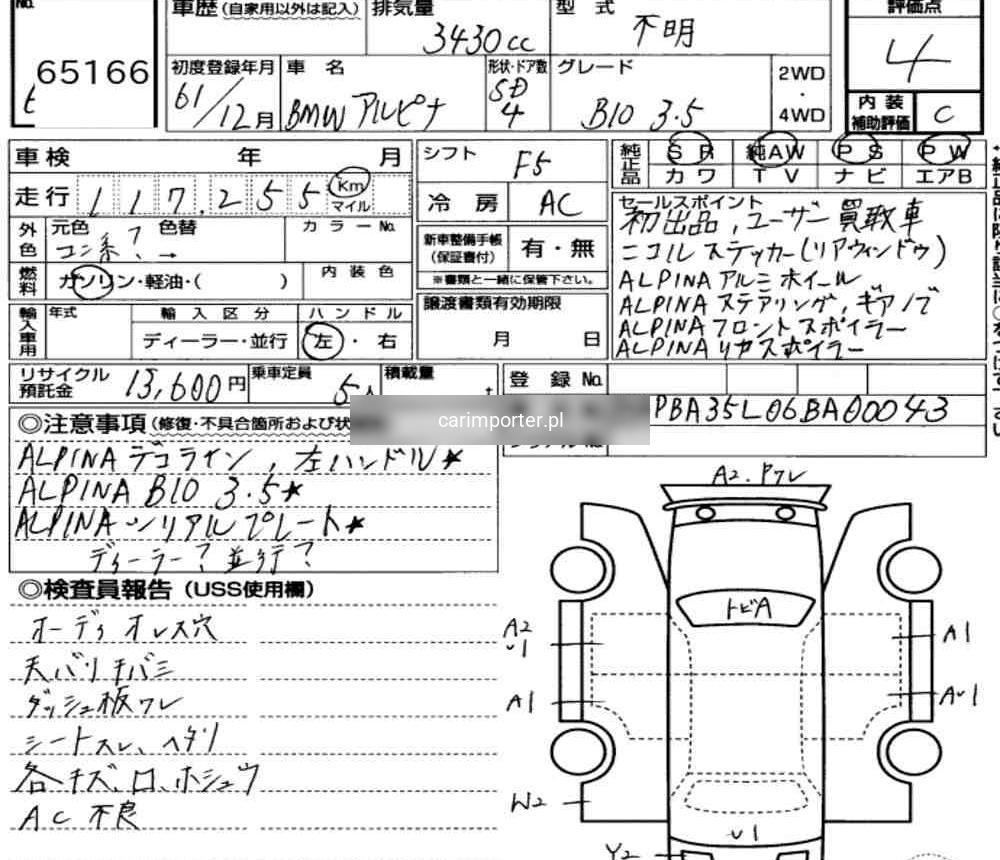 No.
65166
t
車歴 (自家用以外は記入)
排気量
3430cc
型式
不明
評価点
4
内装補助評価
C
初度登録年月
61/12月
車名
BMW アルピナ
形状・ドア数
SD
4
グレード
B10 3.5
2WD
・
4WD
車検 年 月
走行 117,255 Km マイル
外色
元色 色替 カラーNo.
コン系? →
燃料
ガソリン・軽油・( )
内装色
輸入車用
年式
輸入区分
ディーラー・並行
ハンドル
左・右
シフト F5
冷房 AC
新車整備手帳
(保証書付)
有・無
※書類と一緒に保管下さい。
譲渡書類有効期限
月 日
純正品
SR 純AW PS PW
カワ TV ナビ エアB
セールスポイント
初出品,ユーザー買取車
ニコルステッカー(リアウィンドウ)
ALPINA アルミホイール
ALPINA ステアリング,ギアノブ
ALPINA フロントスポイラー
ALPINA リヤスポイラー
リサイクル預託金 13,600円
乗車定員 5人
積載量 t
登録No.
PBA35L06BA00043
carimporter.pl
◎注意事項(修復・不具合箇所および状
ALPINA デコライン, 左ハンドル★
ALPINA B10 3.5★
ALPINA シリアルプレート★
ディーラー?並行?
◎検査員報告(USS使用欄)
オーディオレス穴
天バリチバミ
ダッシュ板ワレ
シートスレ、ヘタリ
各キズ、凹、ホシュウ
AC 不良
A2.Pワレ
トビA
A2
U1
A1
A1
AU1
W2
U1
Y2